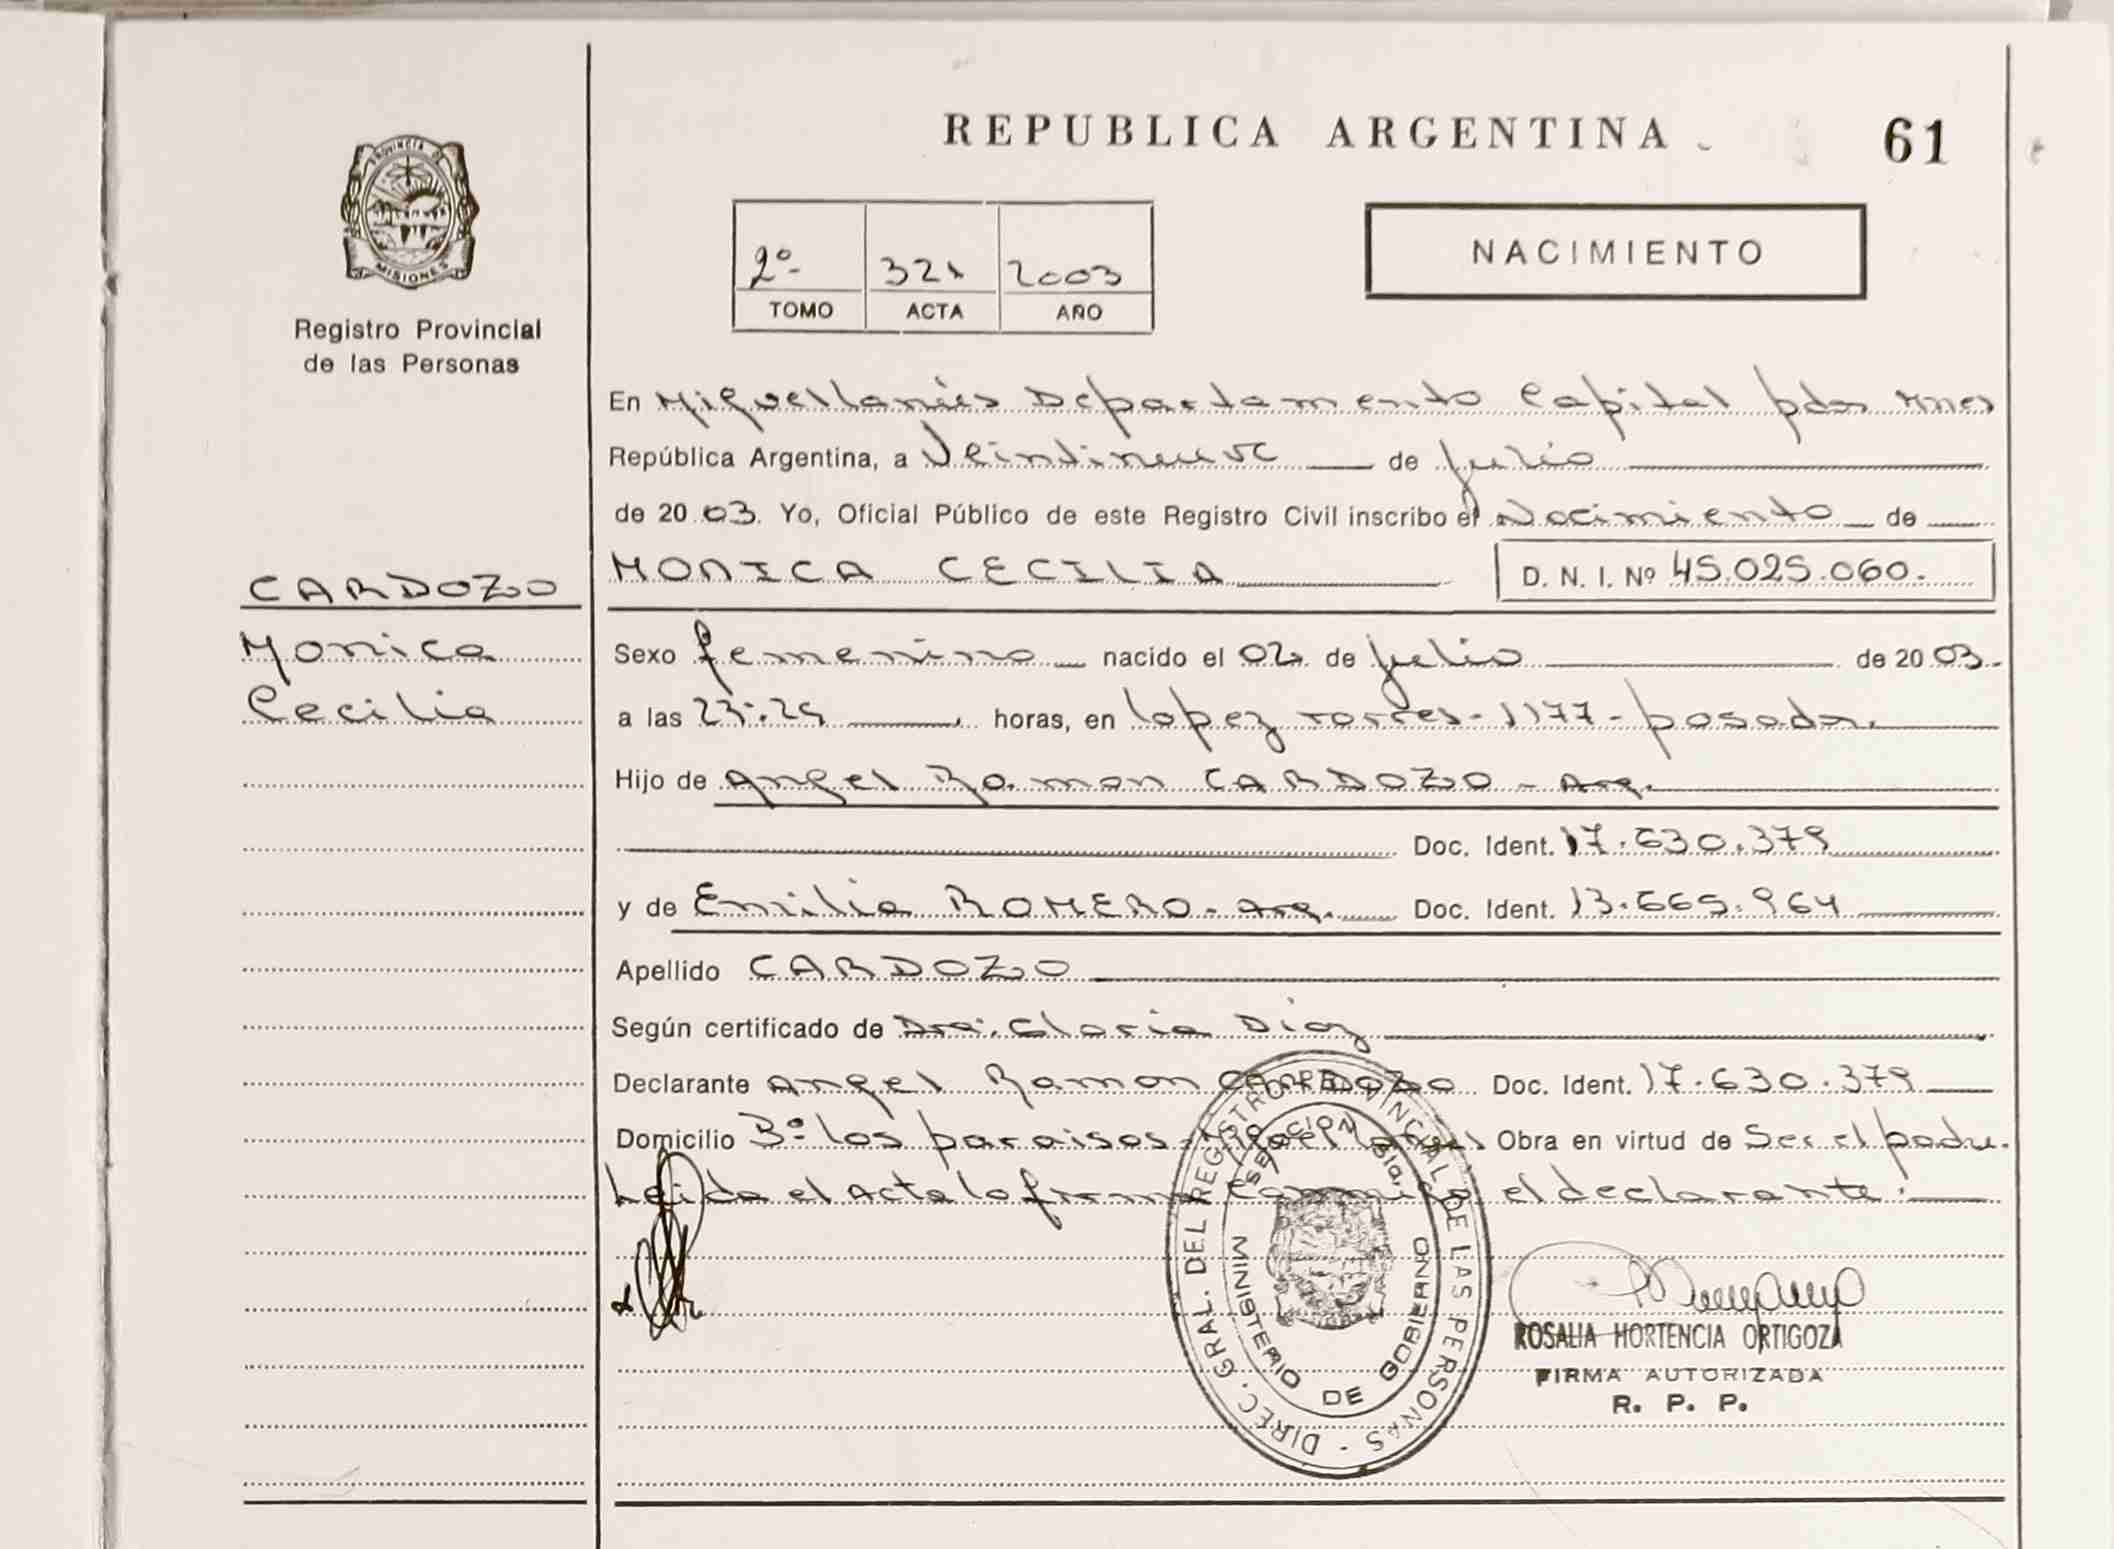 REPUBLICA ARGENTINA
61
PROVINCIA DE
MISIONES
Registro Provincial
de las Personas
2º 321 2003
TOMO ACTA AÑO
NACIMIENTO
En Miguel Lanús Departamento Capital pdas Mnes
República Argentina, a Veintinueve de Julio
de 2003. Yo, Oficial Público de este Registro Civil inscribo el Nacimiento de
CARDOZO
MONICA CECILIA D. N. I. Nº 45.025.060.
Monica
Sexo femenino nacido el 02 de Julio de 2003.
Cecilia
a las 23:25 horas, en Lopez Torres-1177-posadas.
Hijo de Angel Ramon CARDOZO - Arg.
Doc. Ident. 17.630.379
y de Emilia ROMERO - Arg. Doc. Ident. 13.665.964
Apellido CARDOZO
Según certificado de Dra. Gloria Diaz
Declarante Angel Ramon CARDOZO Doc. Ident. 17.630.379
Domicilio Bº Los paraisos - Miguel Lanus Obra en virtud de Ser el padre.
Leída el Acta la firma conmigo el declarante.
DIREC. GRAL. DEL REGISTRO PROVINCIAL DE LAS PERSONAS -
MINISTERIO DE GOBIERNO
ROSALIA HORTENCIA ORTIGOZA
FIRMA AUTORIZADA
R. P. P.